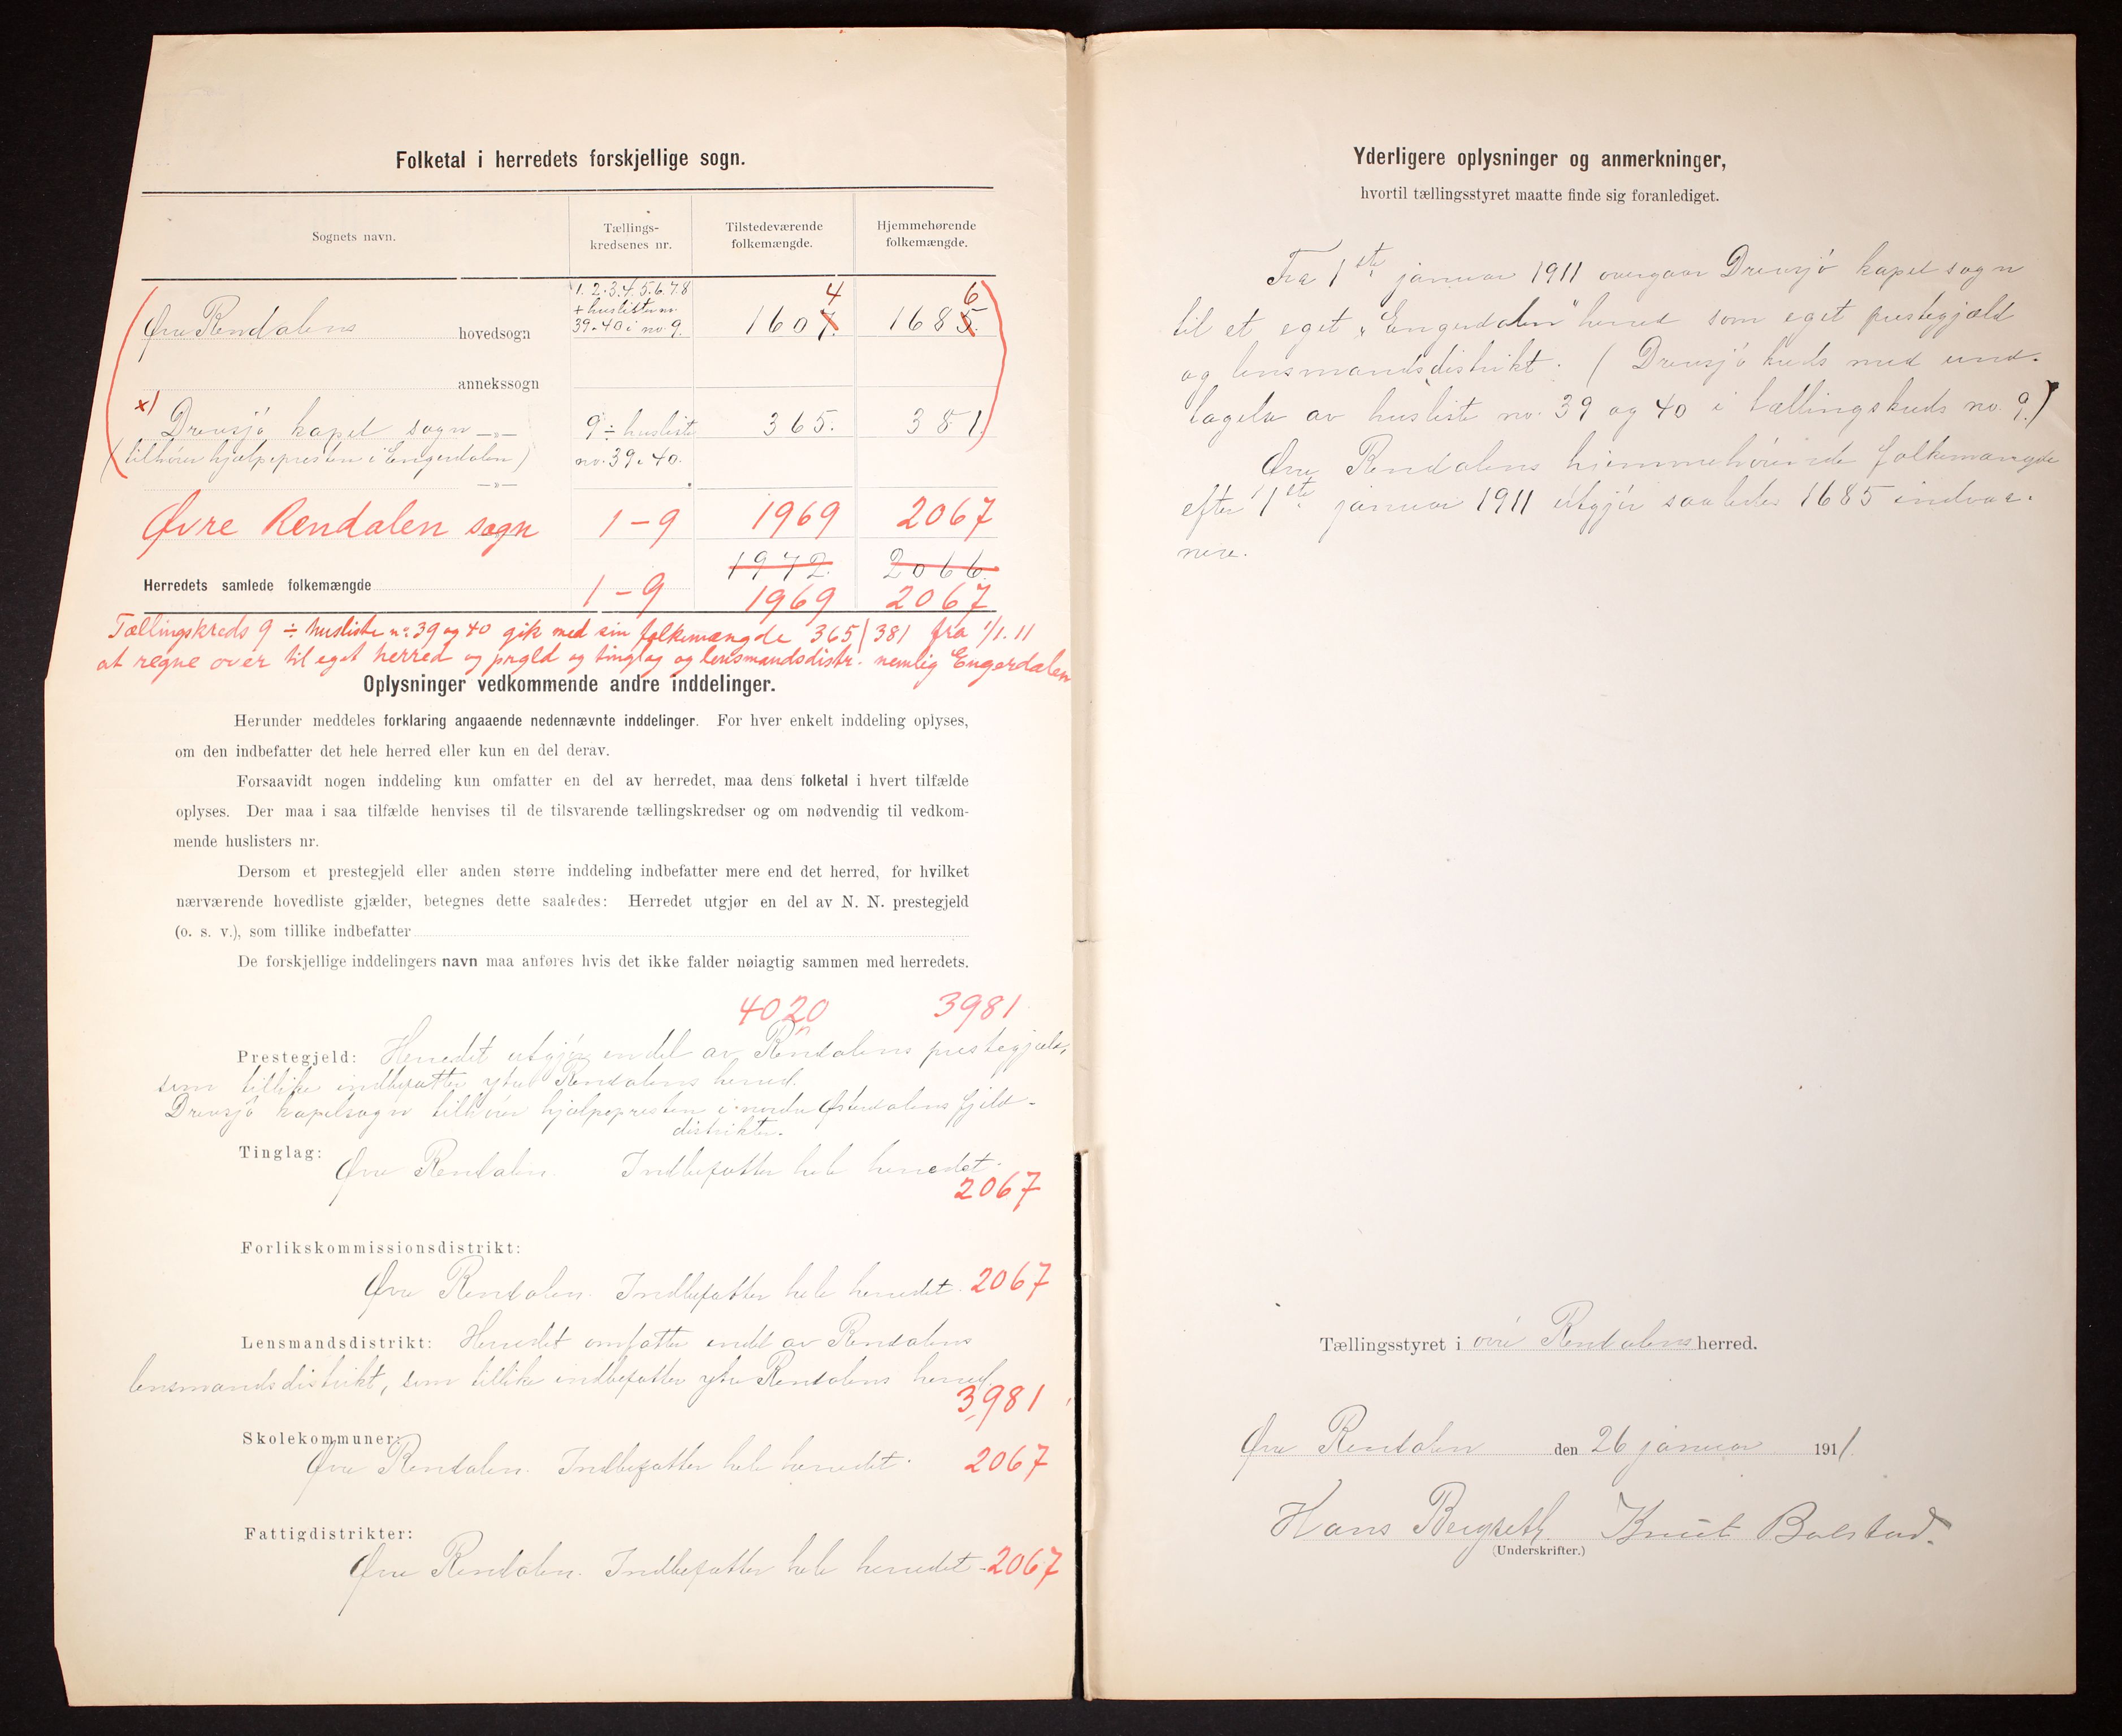 Folketal i herredets forskjellige sogn.
Sognets navn.
Tællings-
kredsenes nr.
Tilstedeværende
folkemængde.
Hjemmehørende
folkemængde.
1. 2. 3. 4. 5. 6. 7 8
+ huslisten nr.
39. 40 i no 9.
Øvre Rendalens hovedsogn
4
1607.
6
1685.
annekssogn
x) Drevsjø kapel sogn —„—
9 ÷ husliste
365.
381.
(tilhører hjælpepresten i Engerdalen)
no. 39. 40.
—»—
Øvre Rendalen sogn 1–9 1969 2067
1972. 2066.
Herredets samlede folkemængde 1–9 1969 2067
Tællingskreds 9 ÷ husliste nr. 39 og 40 gik med sin folkemængde 365/381 fra 1/1. 11
at regne over til eget herred og prgld og tinglag og lensmandsdistr. nemlig Engerdalen
Oplysninger vedkommende andre inddelinger.
Herunder meddeles forklaring angaaende nedennævnte inddelinger. For hver enkelt inddeling oplyses,
om den indbefatter det hele herred eller kun en del derav.
Forsaavidt nogen inddeling kun omfatter en del av herredet, maa dens folketal i hvert tilfælde
oplyses. Der maa i saa tilfælde henvises til de tilsvarende tællingskredser og om nødvendig til vedkom-
mende huslisters nr.
Dersom et prestegjeld eller anden større inddeling indbefatter mere end det herred, for hvilket
nærværende hovedliste gjælder, betegnes dette saaledes: Herredet utgjør en del av N. N. prestegjeld
(o. s. v.), som tillike indbefatter
De forskjellige inddelingers navn maa anføres hvis det ikke falder nøiagtig sammen med herredets.
4020 3981
Prestegjeld: Herredet utgjør endel av Rendalens prestegjæld,
som tillike indbefatter ytre Rendalens herred.
Drevsjø kapelsogn tilhører hjælpepresten i nordre Østerdalens fjeld-
distrikter.
Tinglag: Øvre Rendalen. Indbefatter hele herredet.
2067
Forlikskommissionsdistrikt:
Øvre Rendalen. Indbefatter hele herredet. 2067
Lensmandsdistrikt: Herredet omfatter endel av Rendalens
lensmandsdistrikt, som tillike indbefatter ytre Rendalens herred.
3981
Skolekommuner:
Øvre Rendalen. Indbefatter hele herredet. 2067
Fattigdistrikter:
Øvre Rendalen. Indbefatter hele herredet - 2067
Yderligere oplysninger og anmerkninger,
hvortil tællingsstyret maatte finde sig foranlediget.
Fra 1ste januar 1911 overgaar Drevsjø kapel sogn
til et eget „Engerdalen" herred som eget prestegjæld
og lensmandsdistrikt. (Drevsjø kreds med und-
tagelse av husliste no. 39 og 40 i tællingskreds no. 9.)
Øvre Rendalens hjemmehørende folkemængde
efter 1ste januar 1911 utgjør saaledes 1685 indvaa-
nere.
Tællingsstyret i øvre Rendalens herred.
Øvre Rendalen den 26 januar 1911.
Hans Bergseth. Knut Bolstad.
(Underskrifter.)